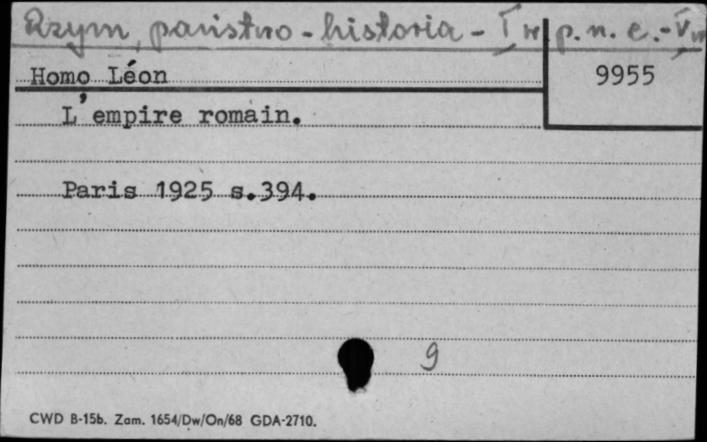 Rzym, państwo - historia - I w p. n. e. - V w
Homo Léon
9955
L'empire romain.
Paris 1925 s.394.
9
CWD B-15b. Zam. 1654/Dw/On/68 GDA-2710.